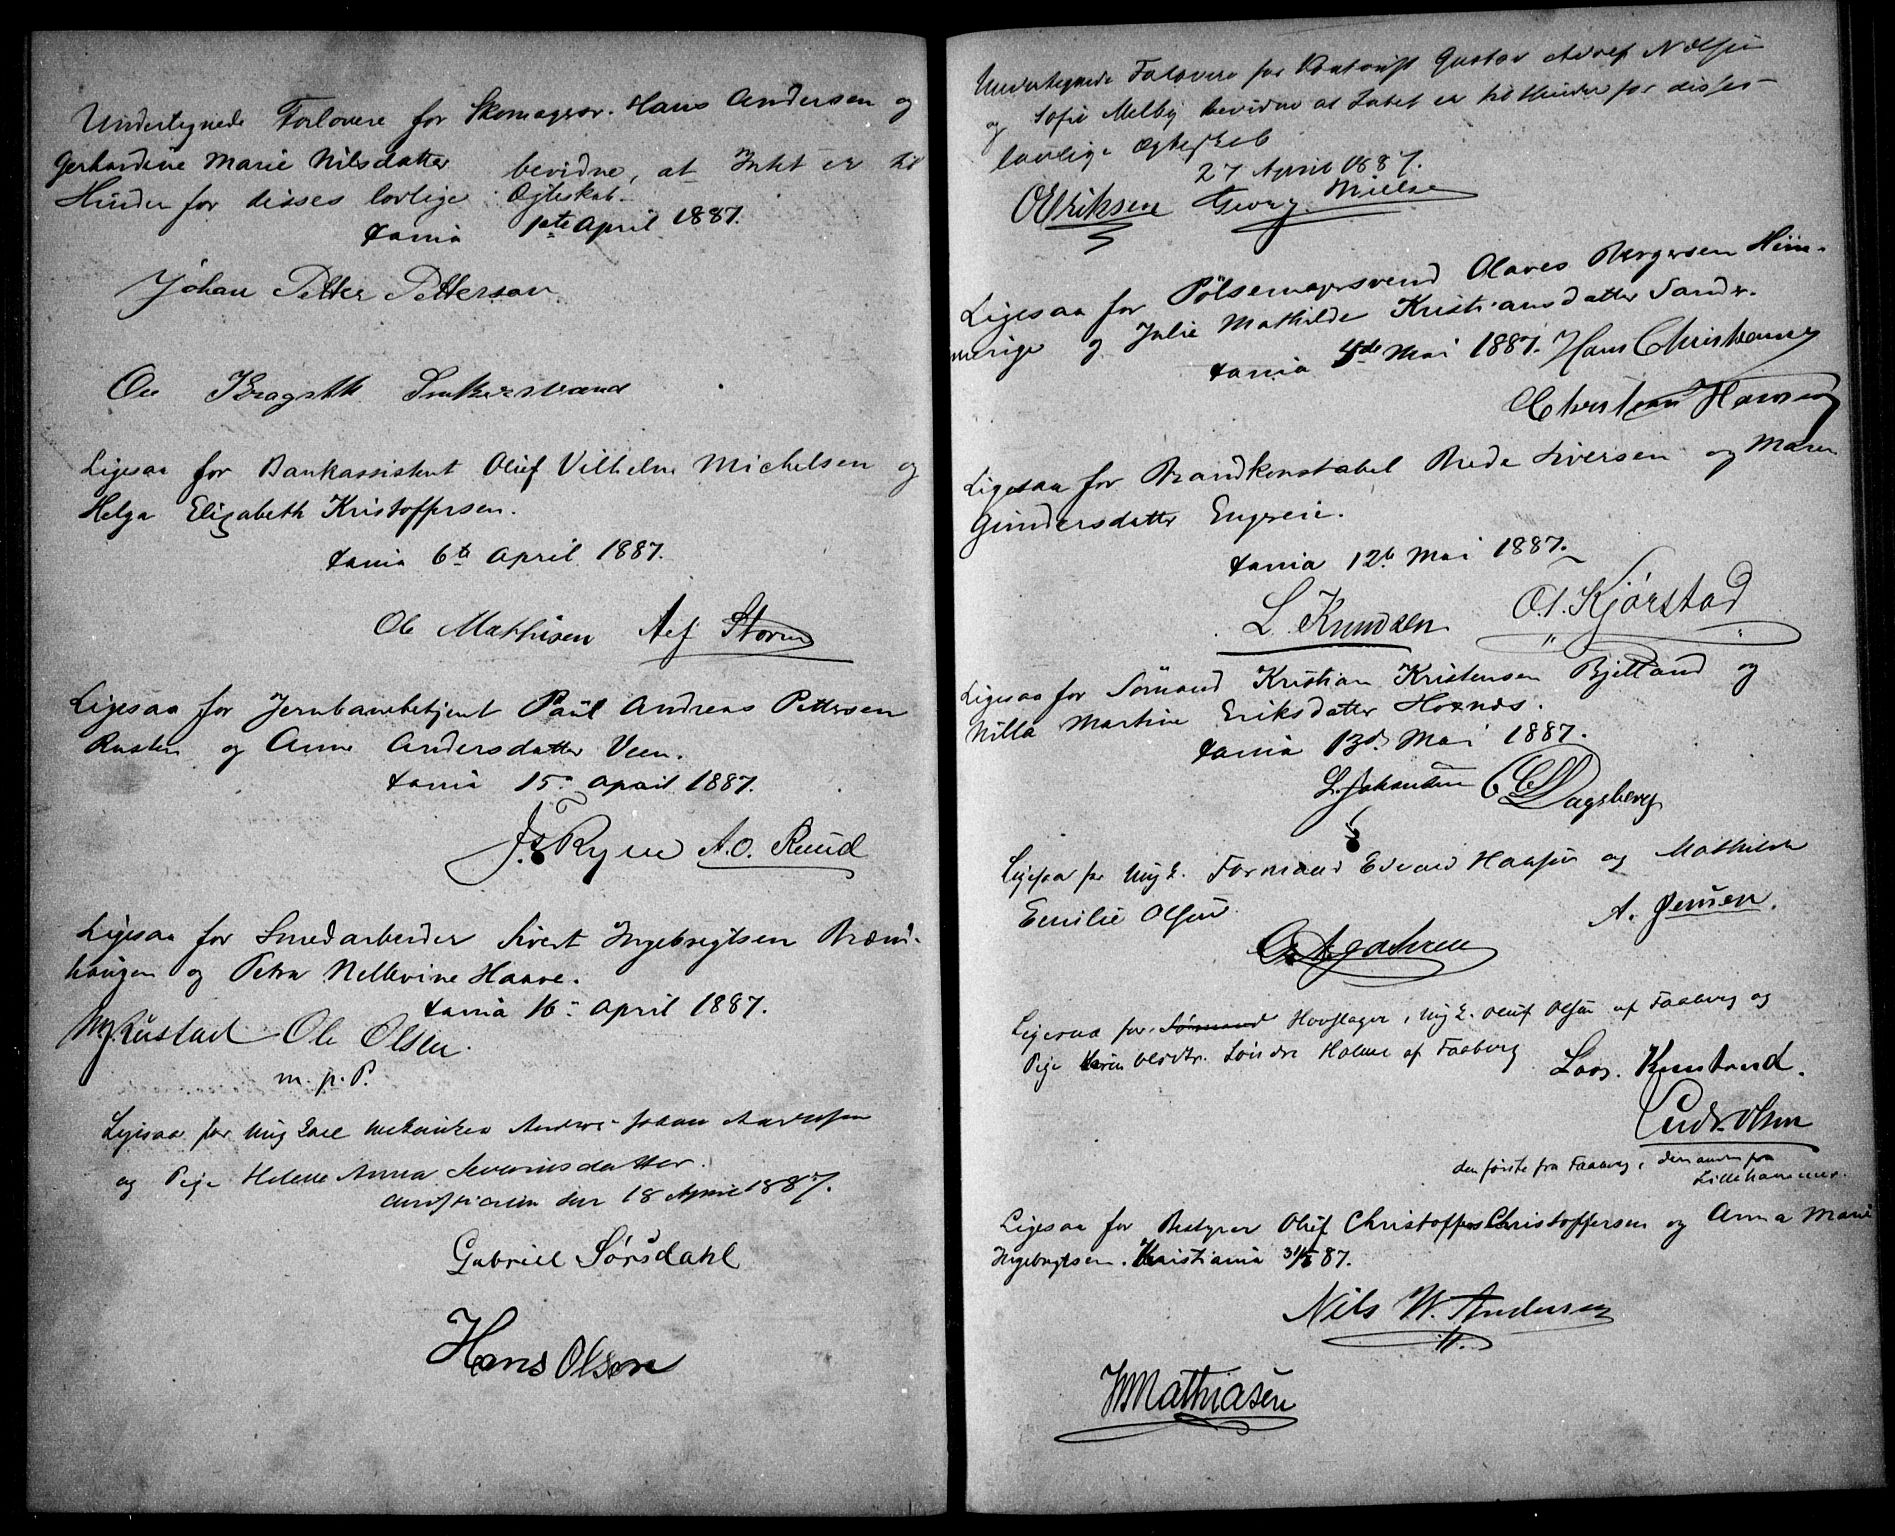 Undertegnede Forlovere for Skomagersv. Hans Andersen og
Gerhardine Marie Nilsdatter bevidne, at Intet er til
Hinder for disses lovlige Ægteskab.
1ste April 1887.
Johan Petter Petterson
Ole
Ligesaa for Bankassistent Oluf Vilhelm Michelsen og
Helga Elizabeth Kristoffersen.
6te April 1887.
Ole Mathisen Storm
Ligesaa for Jernbanebetjent Paul Andreas Pettersen
Rusten og Anne Andersdatter Veen.
15. April 1887.
A. O. Ruud
Ligesaa for Smedarbeider Sivert Ingebrigtsen Brænd-
haugen og Petra Nellevine Haave.
16. April 1887.
Rustad Ole Olsen
m. p. P.
Ligesaa for Ungkarl Mekaniker Anders Johan
og Pige Helene Anna Severinsdatter.
Christiania den 18 April 1887.
Gabriel Sørsdahl
Hans Olsen
Undertegnede Forlovere for Gustav Adolf Nielsen
og Sofie Melby bevidne at Intet er til Hinder for disses
lovlige Ægteskab
27 April 1887.
O Eriksen Georg Nielsen
Ligesaa for Pølsemagersvend Olaves Bergersen Him-
merige og Julie Mathilde Kristiansdatter Sander.
4de Mai 1887. Hans Christiansen
Christian Hansen
Ligesaa for Brandkonstabel Brede Iversen og Maren
Gundersdatter Engereie.
12te Mai 1887.
L. Knudsen O. Kjørstad
Ligesaa for Sømand Kristian Kristensen Bjelland og
Nilla Martine Eriksdatter Hornes.
13de Mai 1887.
L. Johansen Dagsberg
Ligesaa for Ungk. Formand Edvard Hansen og Mathilde
Emilie Olsen.
A. Jensen.
Ligesaa for Sømand Hovslager, Ungk. Oluf Olsen af Faaberg og
Pige Karen Olsdtr. Søndre Holme af Faaberg
Lars. Knutsrud.
Ludv. Olsen
den første fra Faaberg, den anden fra
Lillehammer.
Ligesaa for Bestyrer Oluf Christoffer Christoffersen og Anna Marie
Ingebrigtsen. Kristiania 31/5 87.
Nils W. Andersen
Mathiasen